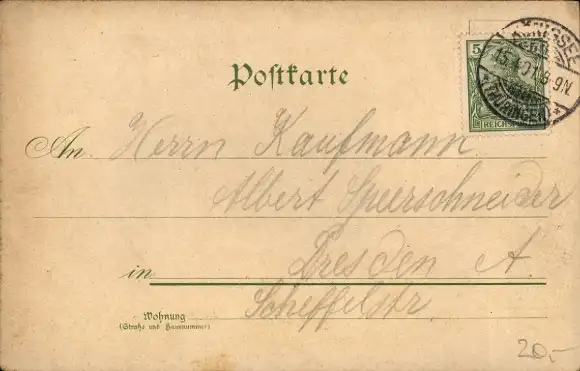 KÖNIGSEE
15.4.01.8-9N.
*(THÜRINGEN)*
5
REICHSPOST
Postkarte
An Herrn Kaufmann
Albert Speerschneider
in Dresden A.
Scheffelstr.
Wohnung
(Straße und Hausnummer)
20,-